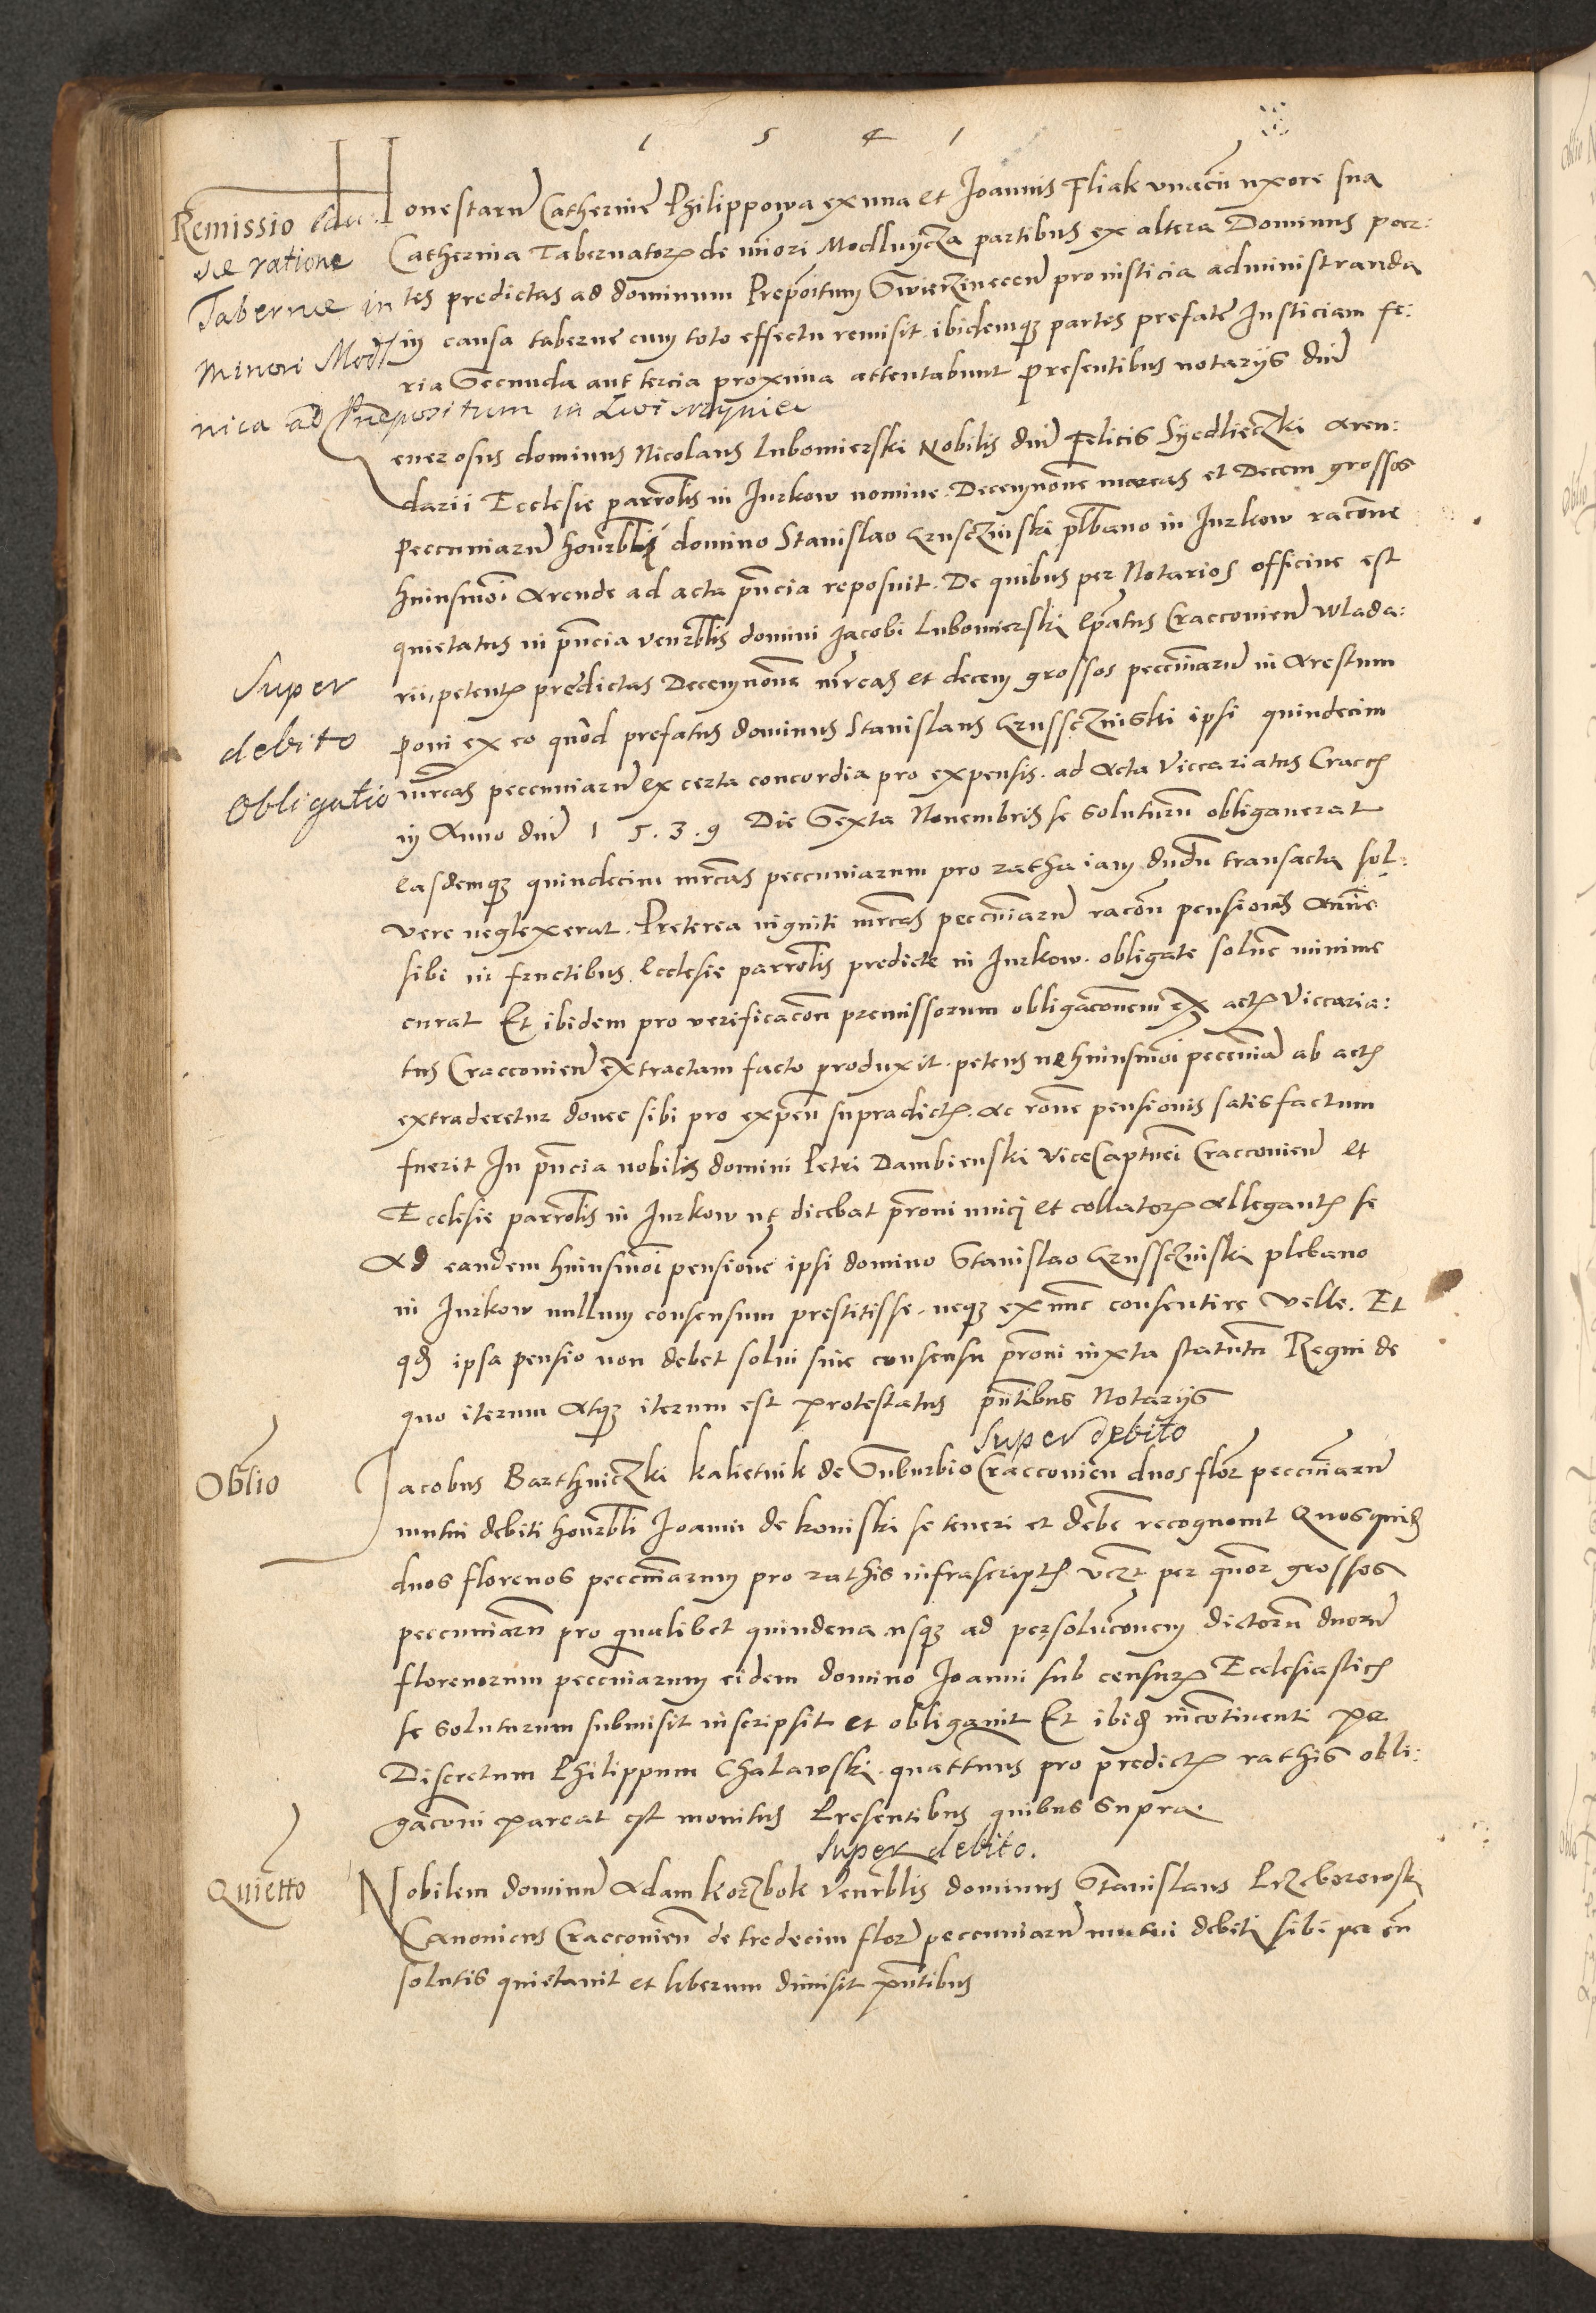 1 5 4 1
Remissio
ve ratione
Tabernæ in
minori Mod
nica ad Præpositum in Zwierzyniec
Honestarũ Catherinę Philippowa ex una et Joannis Fliak vnacũ uxore sua
Catherina Tabernatorꝫ de mĩori Modlnycza partibus ex altera Dominus par:
tes predictas ad dominum Prepõitum Swierzinecen̄ pro iusticia administranda
in causa tabernę cum toto effectu remisit. ibidemqꝫ partes prefatę Iusticiam fe:
ria Secunda aut tercia proxima attentabunt presentibus notariis dnĩ
enerosus dominus Nicolaus Lubomierski Nobilis dnĩ Felicis Syedlieczki Aren:
darii Ecclesię parrõlis in Jurkow nomine. Decemnõne marcas et Decem grossos
peccuniarũ honrblĩ domino Stanislao Grusczinski plbano in Jurkow racõne
huiusmõi Arende ad acta pñcia reposuit. De quibus per Notarios officine est
quietatus in pñcia venrblis domini Jacobi Lubomierski Epatus Cracconien̄ Wlada:
rii, petentꝭ predictas Decemnõne mrcas et decem grossos peccuniarũ in Arestum
Super
debito
Obligatio
poni ex eo quod prefatus dominus Stanislaus Grussczinski ipsi quindecim
mrcas peccuniarũ ex certa concordia pro expensis. ad Acta Viccariatus Cracꝭ
in Anno dnĩ 1 5. 3. 9 Die Sexta Nouembris se soluturũ obligauerat
easdemqꝫ quindecim mrcas peccuniarum pro ratha iam dudũ transacta sol:
vere neglexerat. Preterea viginti mrcas peccuniarũ racõn pensionis Annuę
sibi in fructibus Ecclesię parrõlis predictę in Jurkow. obligatę soluę minime
curat Et ibidem pro verificacõn premissorum obligacõnem ex actꝭ Viccaria:
tus Cracconien̄ extractam facto produxit. petens ne huiusmõi peccuniã ab actꝭ
extraderetur donec sibi pro expen̄ supradictꝭ. ac rõne pensionis satisfactum
fuerit In pñcia nobilis domini Petri Dambienski ViceCaptnei Cracconien̄ et
Ecclesię parrõlis in Jurkow ut dicebat prõni unici et collatorꝭ Allegantꝭ se
Ad eandem huiusmõi pensionẽ ipsi domino Stanislao Grussczinski plebano
in Jurkow nullum consensum prestitisse. neqꝫ ex nunc consentire velle. Et
qꝫ ipsa pensio non debet solui sine consensu prõni iuxta statutũ Regni de
quo iterum atqꝫ iterum est protestatus pñtibus Notariis
Super debito
Oblio
Jacobus Barthniczki kalietnik de Suburbio Cracconien̄ duos flor̃ peccuniarũ
mutui debiti honrbli Joanni de koniski se teneri et debẽ recognouit Quosquiꝫ
duos florenos peccuniarum pro rathis infrascriptꝭ vczt per qũor grossos
peccuniarũ pro qualibet quindena usqꝫ ad persolucõnem dictorũ duorũ
florenorum peccuniarum eidem domino Joanni sub censurꝭ Ecclesiasticꝭ
se soluturum submisit inscripsit et obligauit Et ibiꝫ incõtinenti per
Discretum Philippum Chalawski quattenus pro predictꝭ rathis obli:
gacõni pareat est monitus Presentibus quibus supra.
Super debito.
Quietto
Nobilem dominũ Adam korzbok venrblis dominus Stanislaus Przeborowski
Canonicus Cracconien̄ de tredecim flor̃ peccuniarũ mutui debiti sibi per eũ
solutis quietauit et liberum dimisit pñtibus